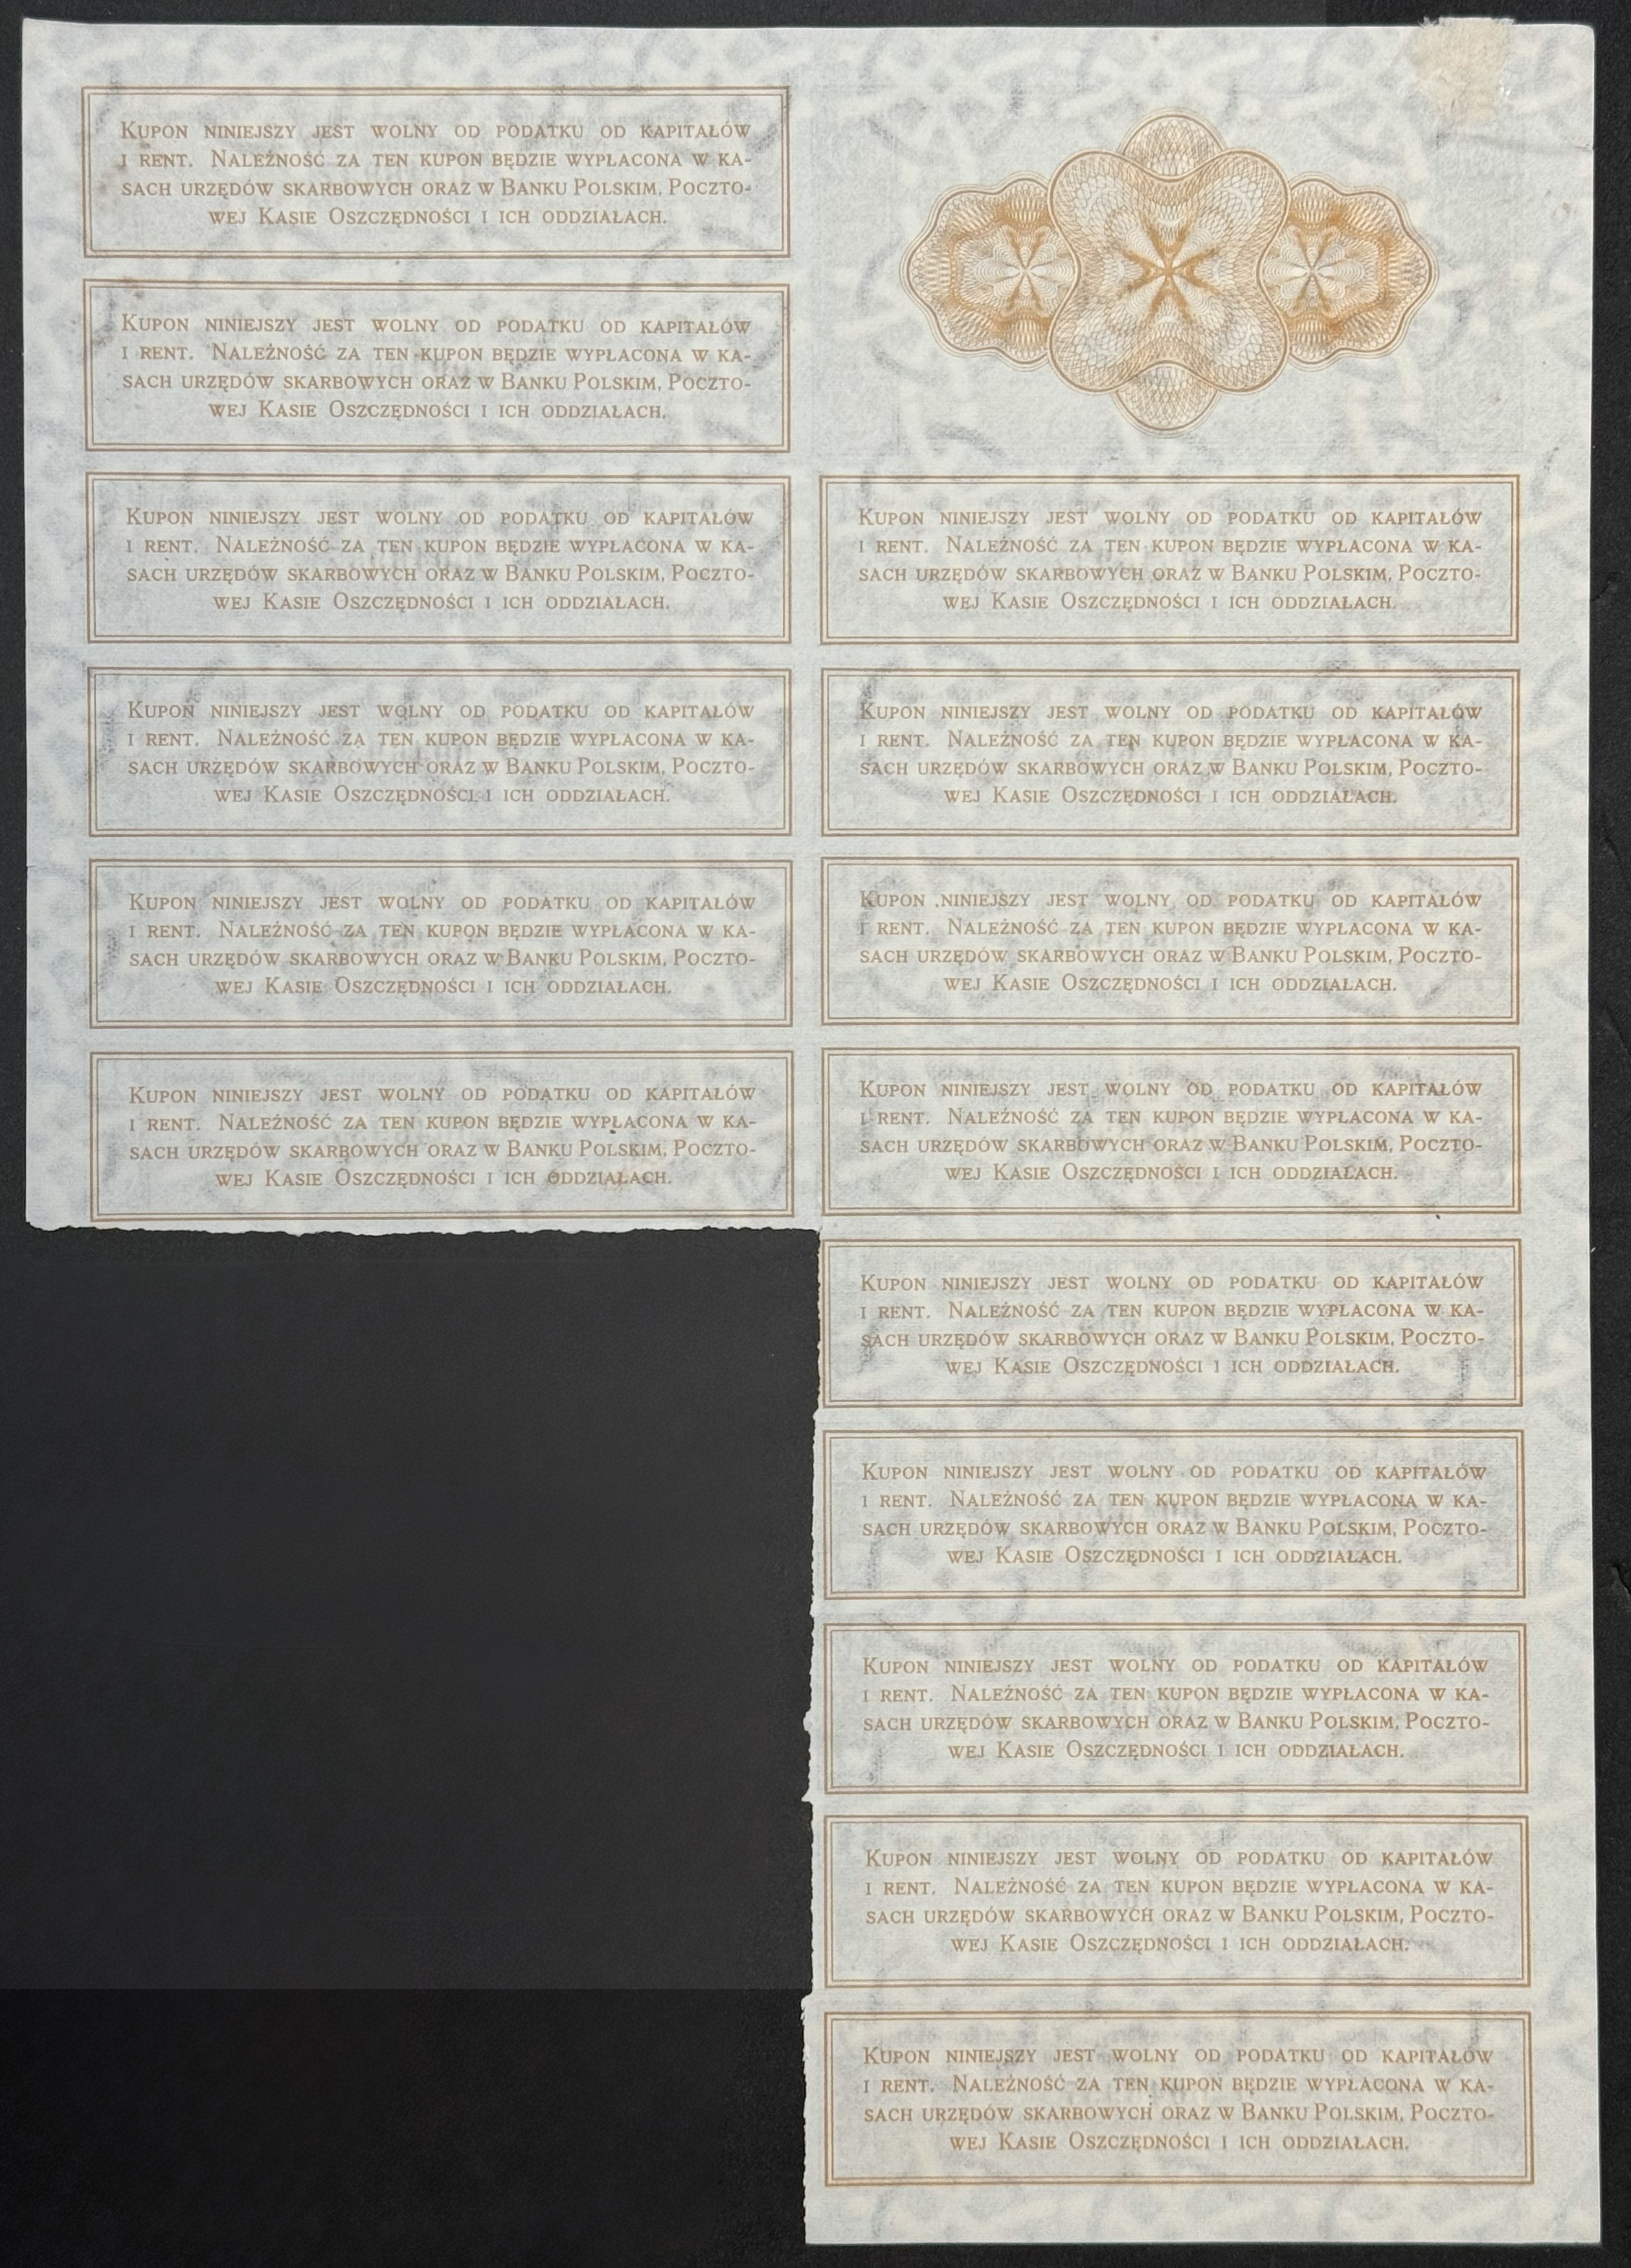 Kupon niniejszy jest wolny od podatku od kapitałów
i rent. Należność za ten kupon będzie wypłacona w ka-
sach urzędów skarbowych oraz w Banku Polskim, Poczto-
wej Kasie Oszczędności i ich oddziałach.
Kupon niniejszy jest wolny od podatku od kapitałów
i rent. Należność za ten kupon będzie wypłacona w ka-
sach urzędów skarbowych oraz w Banku Polskim, Poczto-
wej Kasie Oszczędności i ich oddziałach.
Kupon niniejszy jest wolny od podatku od kapitałów
i rent. Należność za ten kupon będzie wypłacona w ka-
sach urzędów skarbowych oraz w Banku Polskim, Poczto-
wej Kasie Oszczędności i ich oddziałach.
Kupon niniejszy jest wolny od podatku od kapitałów
i rent. Należność za ten kupon będzie wypłacona w ka-
sach urzędów skarbowych oraz w Banku Polskim, Poczto-
wej Kasie Oszczędności i ich oddziałach.
Kupon niniejszy jest wolny od podatku od kapitałów
i rent. Należność za ten kupon będzie wypłacona w ka-
sach urzędów skarbowych oraz w Banku Polskim, Poczto-
wej Kasie Oszczędności i ich oddziałach.
Kupon niniejszy jest wolny od podatku od kapitałów
i rent. Należność za ten kupon będzie wypłacona w ka-
sach urzędów skarbowych oraz w Banku Polskim, Poczto-
wej Kasie Oszczędności i ich oddziałach.
Kupon niniejszy jest wolny od podatku od kapitałów
i rent. Należność za ten kupon będzie wypłacona w ka-
sach urzędów skarbowych oraz w Banku Polskim, Poczto-
wej Kasie Oszczędności i ich oddziałach.
Kupon niniejszy jest wolny od podatku od kapitałów
i rent. Należność za ten kupon będzie wypłacona w ka-
sach urzędów skarbowych oraz w Banku Polskim, Poczto-
wej Kasie Oszczędności i ich oddziałach.
Kupon niniejszy jest wolny od podatku od kapitałów
i rent. Należność za ten kupon będzie wypłacona w ka-
sach urzędów skarbowych oraz w Banku Polskim, Poczto-
wej Kasie Oszczędności i ich oddziałach.
Kupon niniejszy jest wolny od podatku od kapitałów
i rent. Należność za ten kupon będzie wypłacona w ka-
sach urzędów skarbowych oraz w Banku Polskim, Poczto-
wej Kasie Oszczędności i ich oddziałach.
Kupon niniejszy jest wolny od podatku od kapitałów
i rent. Należność za ten kupon będzie wypłacona w ka-
sach urzędów skarbowych oraz w Banku Polskim, Poczto-
wej Kasie Oszczędności i ich oddziałach.
Kupon niniejszy jest wolny od podatku od kapitałów
i rent. Należność za ten kupon będzie wypłacona w ka-
sach urzędów skarbowych oraz w Banku Polskim, Poczto-
wej Kasie Oszczędności i ich oddziałach.
Kupon niniejszy jest wolny od podatku od kapitałów
i rent. Należność za ten kupon będzie wypłacona w ka-
sach urzędów skarbowych oraz w Banku Polskim, Poczto-
wej Kasie Oszczędności i ich oddziałach.
Kupon niniejszy jest wolny od podatku od kapitałów
i rent. Należność za ten kupon będzie wypłacona w ka-
sach urzędów skarbowych oraz w Banku Polskim, Poczto-
wej Kasie Oszczędności i ich oddziałach.
Kupon niniejszy jest wolny od podatku od kapitałów
i rent. Należność za ten kupon będzie wypłacona w ka-
sach urzędów skarbowych oraz w Banku Polskim, Poczto-
wej Kasie Oszczędności i ich oddziałach.